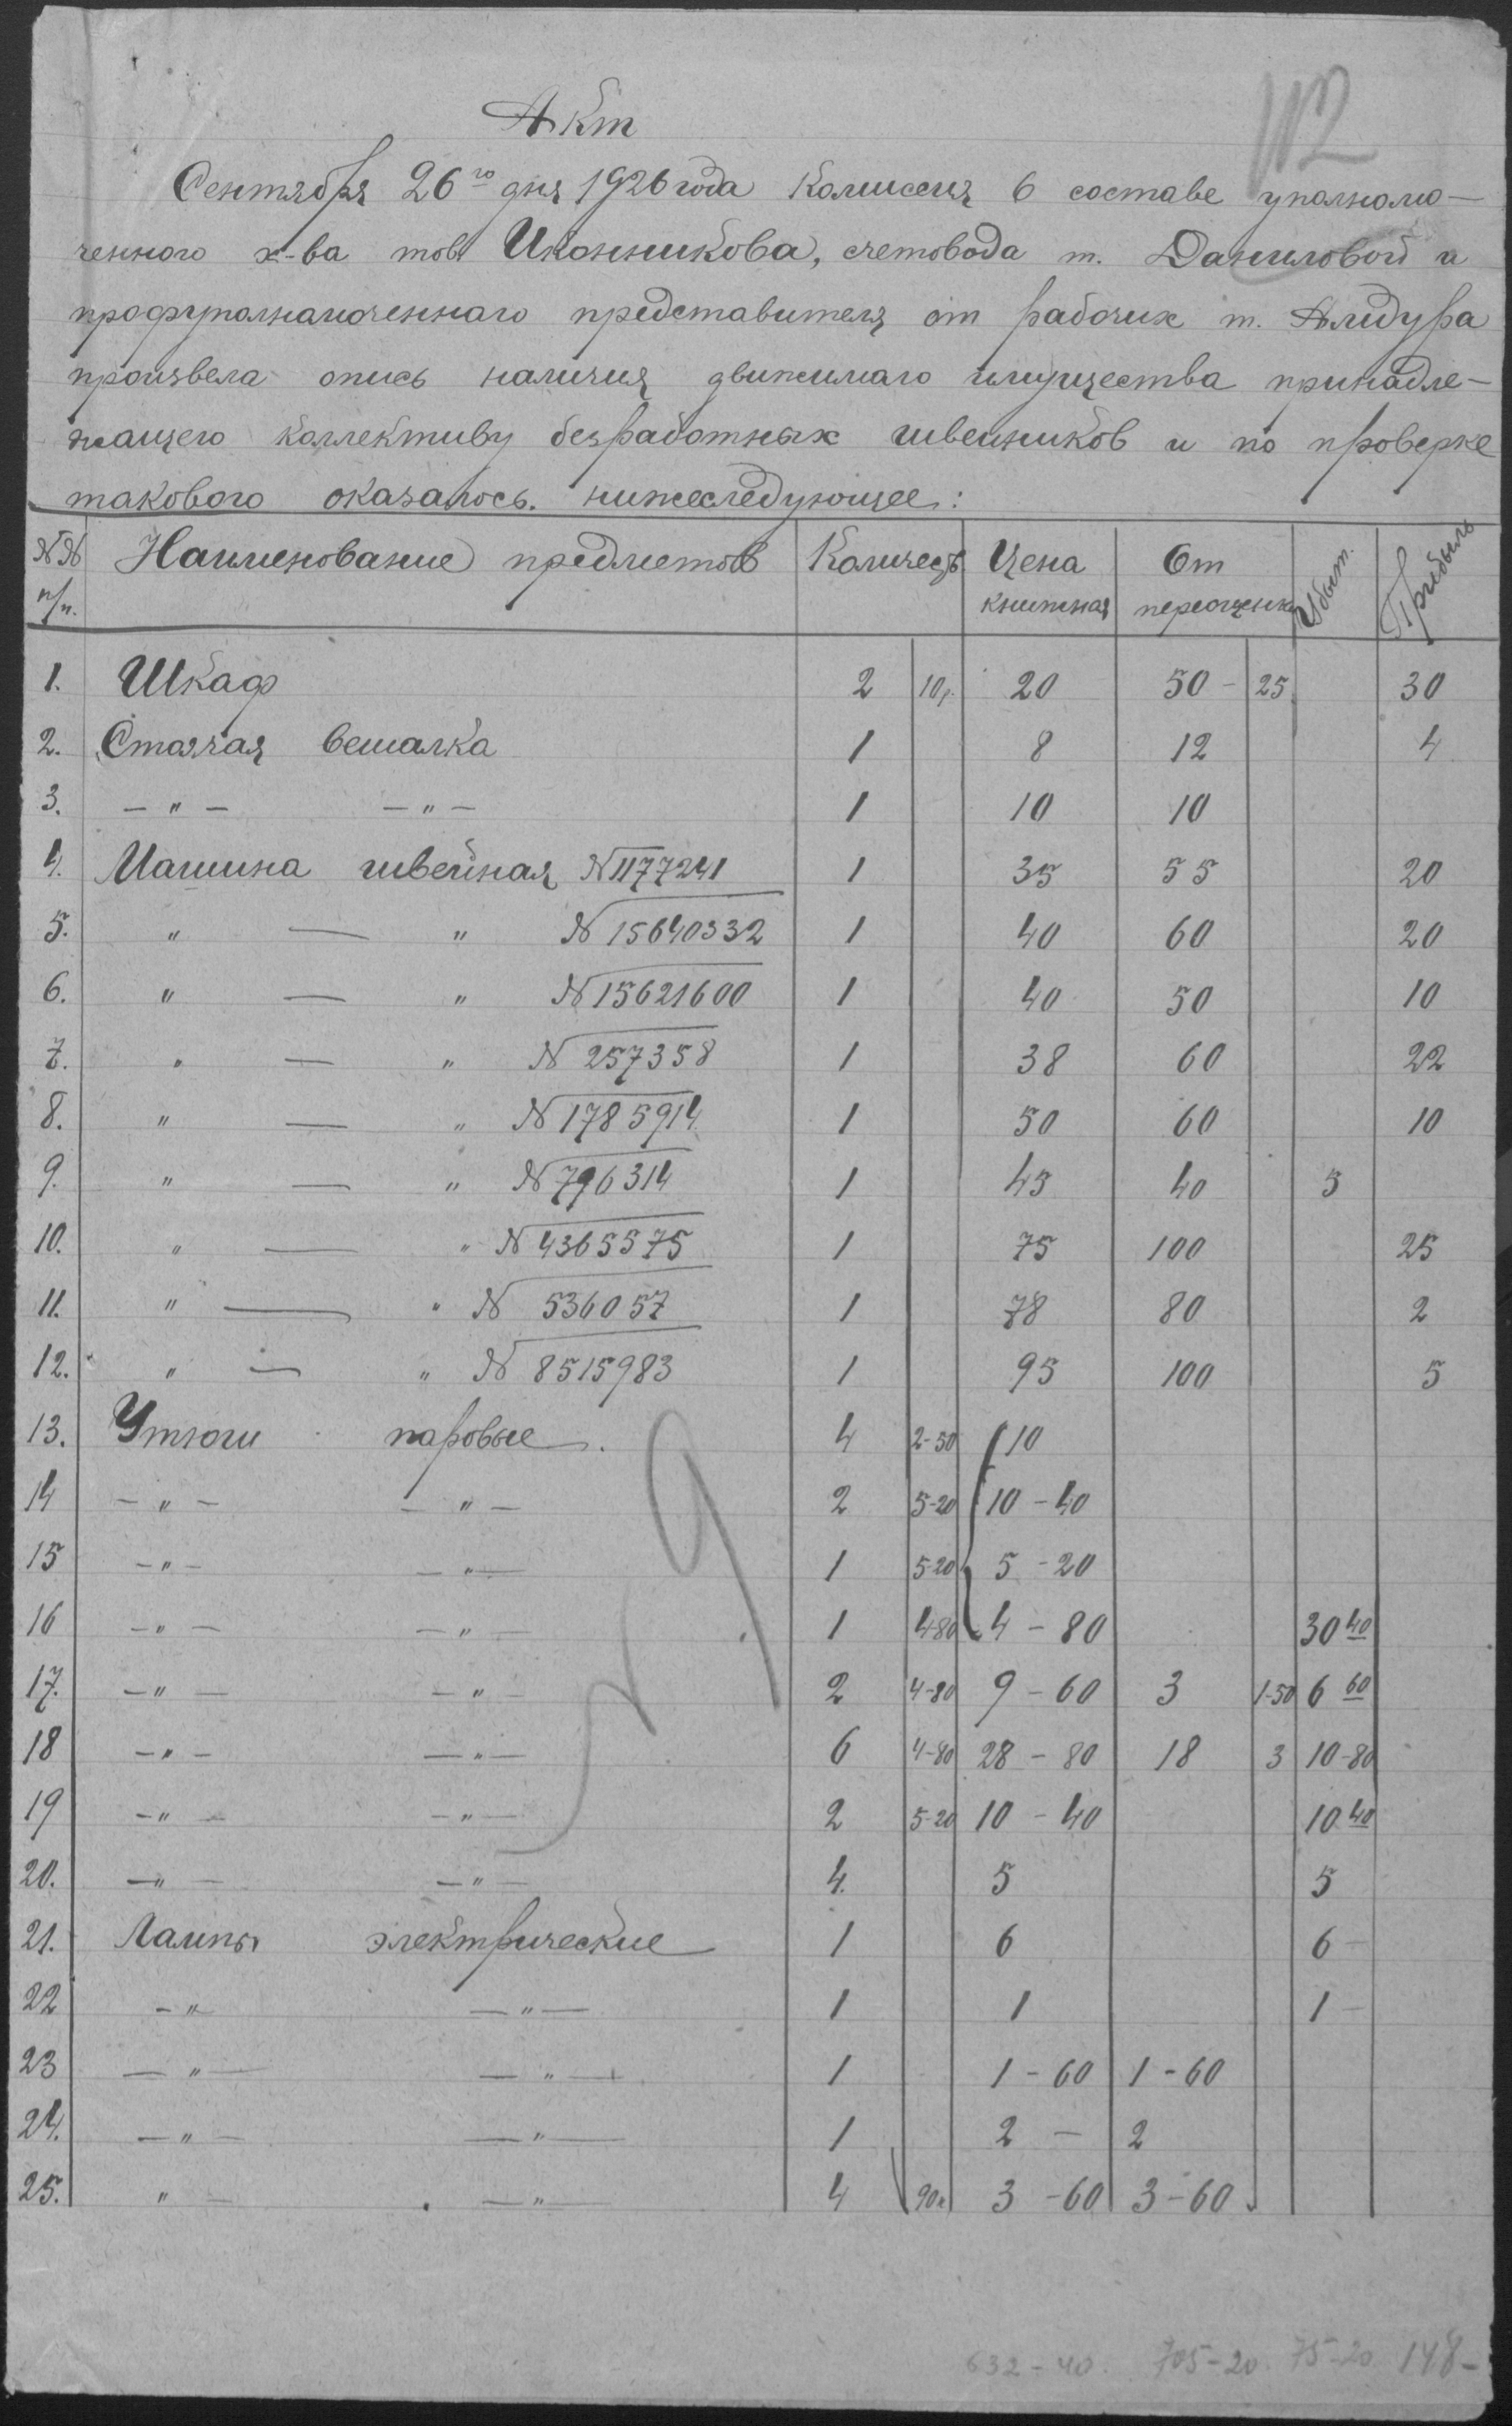 112
Акт
Сентября 26го дня 1926 года Комиссия в составе уполномо-
ченного х-ва тов. Иконникова, счетовода т. Даниловой и
профуполномоченнаго представителя от рабочих т. Алидура
произвела опись наличия движимаго имущества принадле-
жащего коллективу безработных швейников и по проверке
такового оказалось нижеследующее:
№№ п/п. Наименование предметов Количеств Цена книжная От переоценк Убыт. Прибыль
1. Шкаф 2 10р. 20 50 - 25 30
2. Стоячая вешалка 1 8 12 4
3. - " - - " - 1 10 10
4. Машина швейная N1177241 1 35 55 20
5. " — " N 15640332 1 40 60 20
6. " — " N 15621600 1 40 50 10
7. " — " N 257358 1 38 60 22
8. " — " N 1785914 1 50 60 10
9. " — " N 796314 1 45 40 5
10. " — " N 4365575 1 75 100 25
11. " — " N 536057 1 78 80 2
12. " — " N 8515983 1 95 100 5
13. Утюги паровые. 4 2-50 10
14 - " - - " - 2 5-20 10 - 40
15 - " - - " - 1 5-20 5 - 20
16 - " - - " - 1 4-80 4 - 80 30 40
17. - " - - " - 2 4-80 9 - 60 3 1-50 6 60
18 - " - - " - 6 4-80 28 - 80 18 3 10-80
19 - " - - " - 2 5-20 10 - 40 10 40
20. - " - - " - 4. 5 5
21. Лампы электрические 1 6 6 -
22 - " - " - 1 1 1 -
23 - " - - " - 1 1 - 60 1 - 60
24. - " - - " - 1 2 - 2
25. " - - " - 4 90к 3 - 60 3 - 60
632 - 40. 705 - 20. 75 - 20 148 -